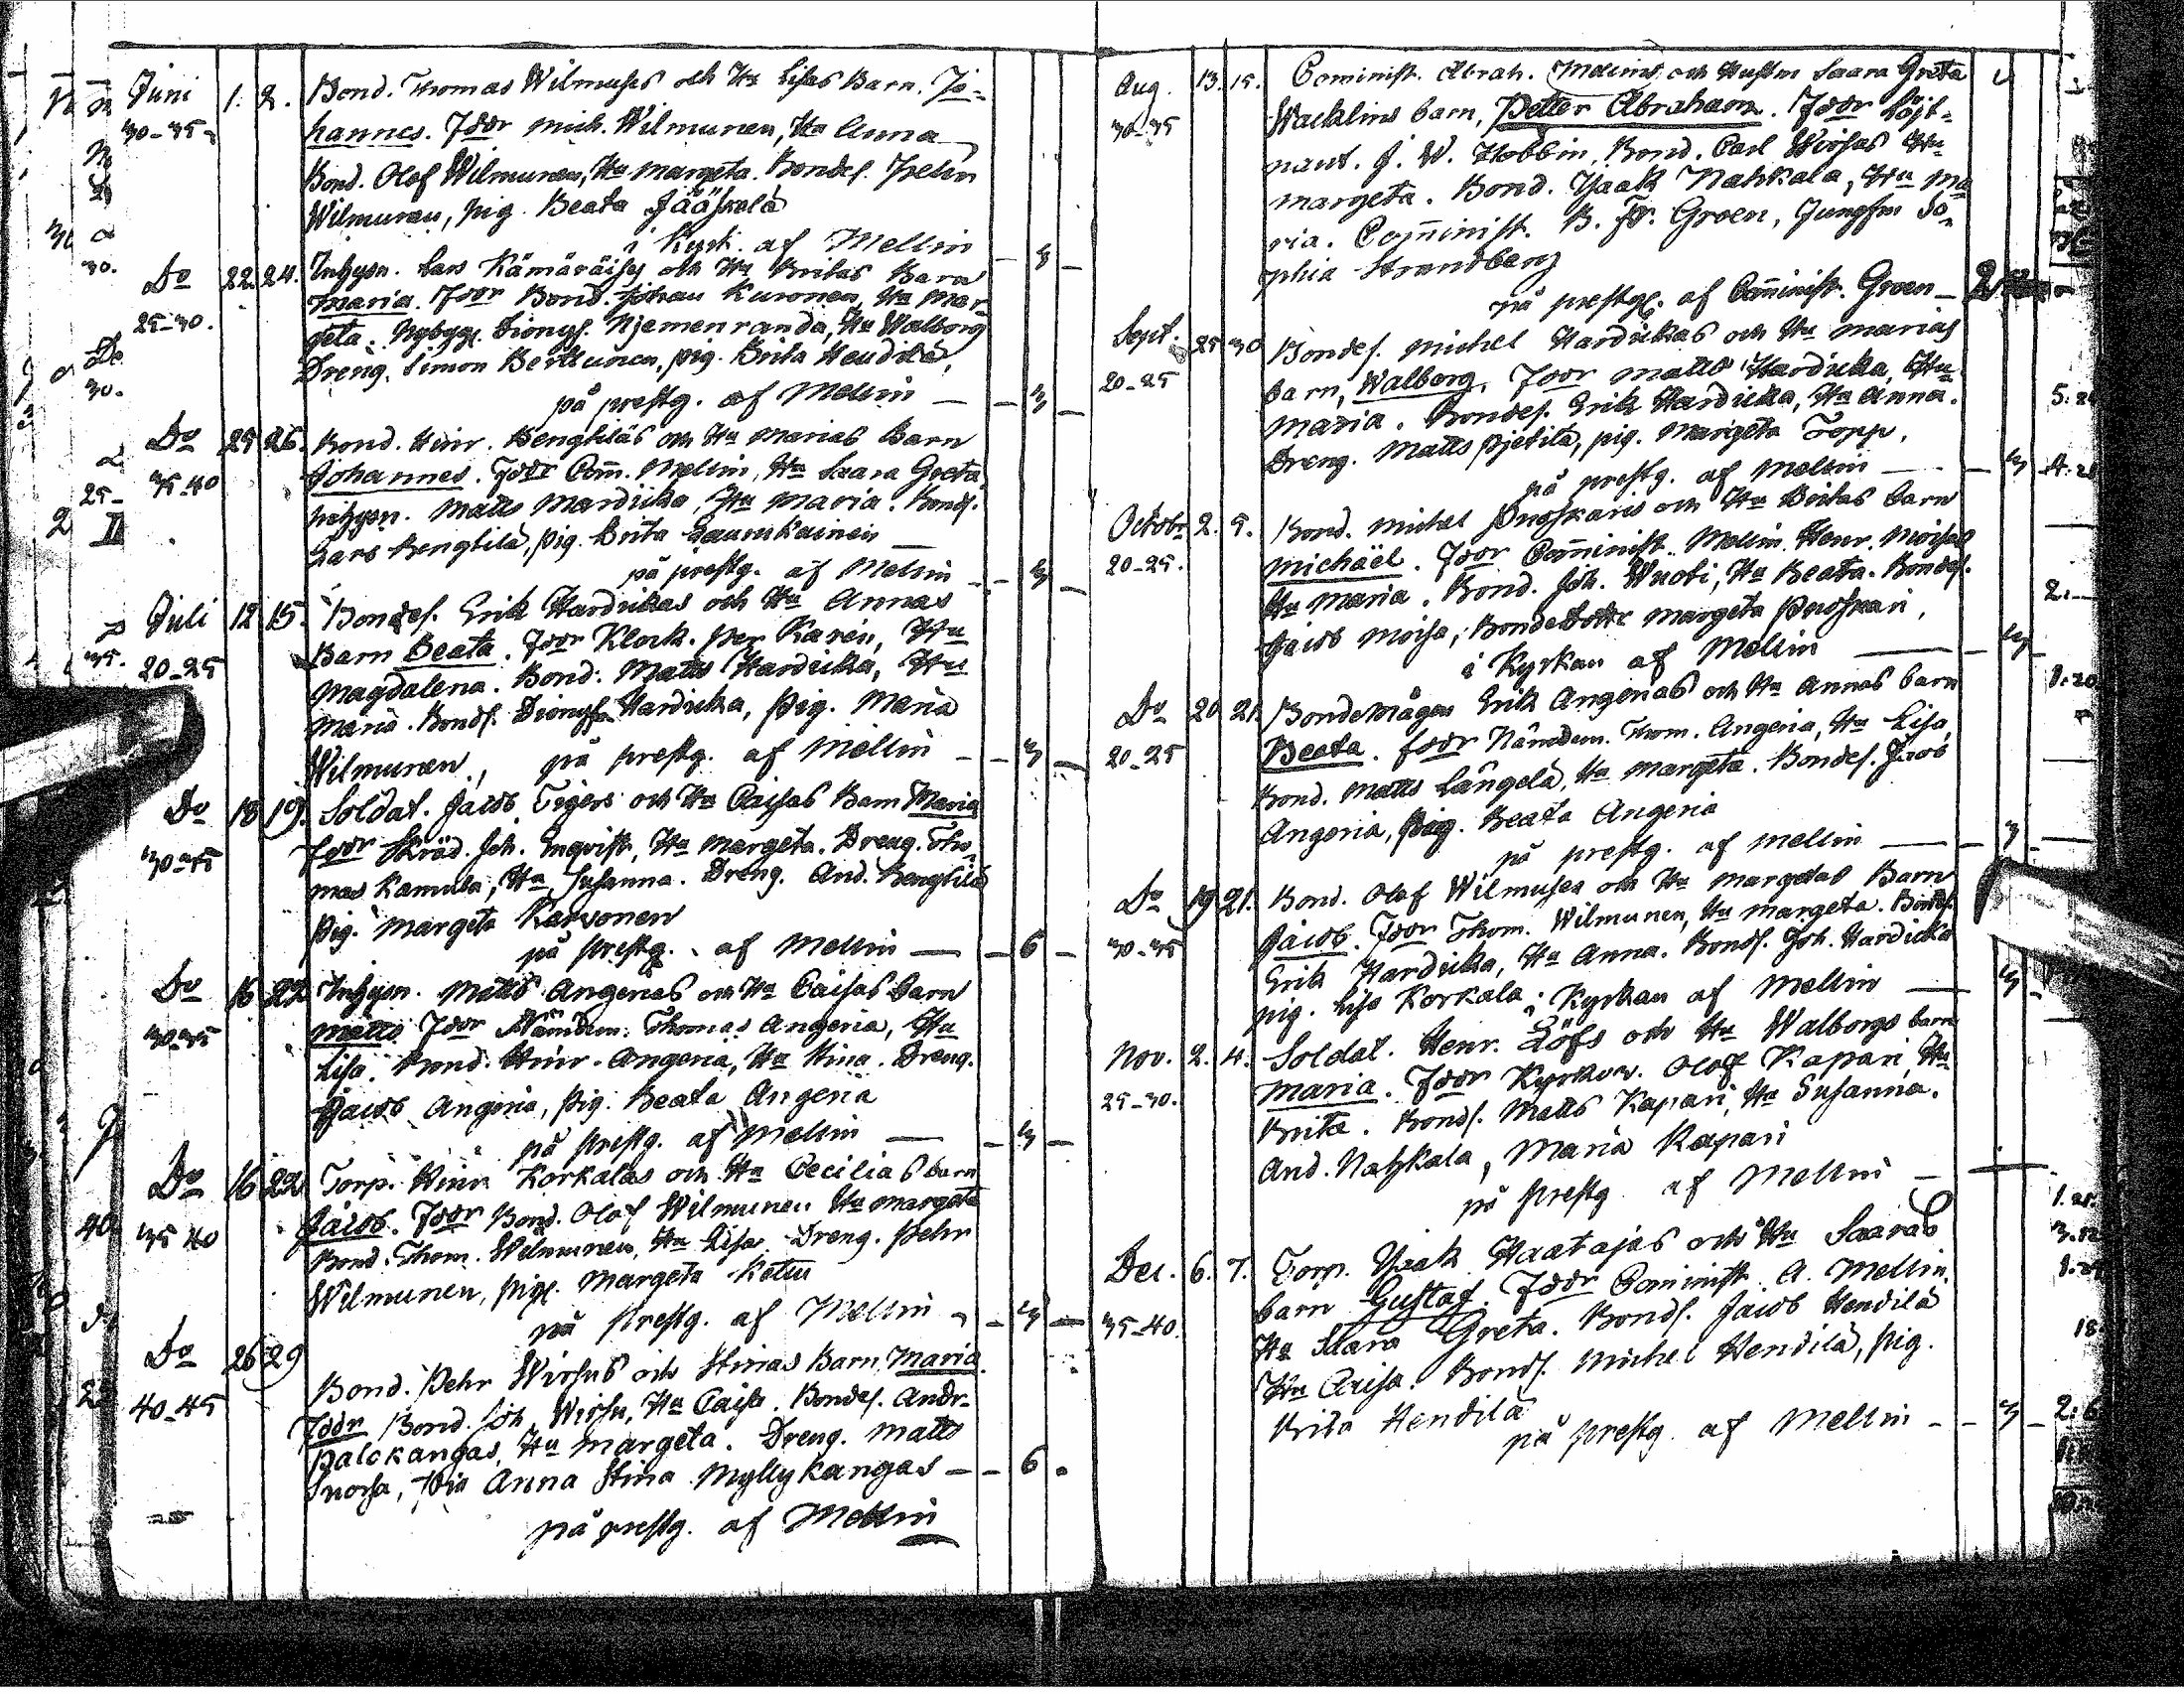 Juni 1. 2. Bond. Thomas Wilmuses och Hu Lisas Barn. Jo-
30-35 hannes. Fddr Mich. Wilmunen, Hu Anna
Bond. Olof Wilmunen, Hu Margeta. Bondes.
Wilmunen, pig. Beata Jääskelä
i Kyrk. af Mellin 3
Do 22. 24. Inhysn. Lars Kämäräises och Hu Britas Barn
25-30. Maria. Fddr Bond. Johan Kuronen, Hu Mar-
geta. Nybygg. Dionys. Njemenranda, Hu Walborg
Dreng. Simon Berttunen, pig. Brita Hendilä,
på prestg. af Mellin 3
Do 25 26. Bond. Hinr. Bengtiläs och Hu Marias Barn
35-40 Johannes. Fddr Com. Mellin, Hu Saara Greta
Inhysn. Matts Mardicka, Hu Maria. Bonds.
Lars Bengtilä, pig. Brita
på prestg. af Mellin 3
Juli 12 15. Bondes. Erik Hardickas och Hu Annas
20-25 Barn Beata. Fddr Klock. Per Karén, Hu
Magdalena. Bond. Matts Hardicka, Hu
Maria. Bonds. Dionys Hardicka, pig. Maria
Wilmunen, på prestg. af Mellin 3
Do 18 19. Soldat. Jacob Tigers och Hu Caisas Barn Maria
Fddr Skräd. Joh. Enqvist, Hu Margeta. Dreng. Tho-
mas Kamula, Hu Susanna. Dreng. And. Bengtilä
Pig. Margeta Karvonen
på prestg. af Mellin 6
Do 16 22 Inhysn. Matts Angerias och Hu Caisas barn
30-35 Matts Fddr Nämdem. Thomas Angeria, Hu
Lisa. Bond. Hinr. Angeria, Hu Stina. Dreng.
Jacob Angeria, pig. Beata Angeria
på prestg. af Mellin 3
Do 16 22 Torp. Hinr. Korkalas och Hu Cecilias barn
35 40 Jacob. Fddr Bond. Olof Wilmunen Hu Margeta
Bond. Thom. Wilmunen, Hu Lisa Dreng. Pehr
Wilmunen, pig. Margeta
på prestg. af Mellin 3
Do 26 29
40-45 Bond. Pehr Wirsus och Stinas Barn Maria
Fddr Bond. Joh. Wirsu, Hu Caisa. Bondes. Andr.
Palokangas, Hu Margeta. Dreng. Matts
Suorsa, Pig Anna Stina Myllykangas 6
på prestg. af Mellin
Aug. 13. 15. Cominist. Abrah. Mellins och Hustrn Saara Greta
30-35 Wacklins barn, Petter Abraham. Fddr Löjt-
nant. J. W. Hobbin, Bond. Carl Wirsus Hu
Margeta. Bond. Isaak Nahkala, Hu Ma-
ria. Cominist. B. Fr. Groen, Jungfru So-
phia Strandberg
på prestg. af Cominist. Groen
Sept. 25 30 Bondes. Michel Hardickas och Hu Marias
20-25 barn, Walborg. Fddr Matts Hardicka, Hu
Maria. Bondes. Erik Hardicka, Hu Anna.
Dreng. Matts Pjetilä, pig. Margeta Topp,
på prestg. af Mellin 3
Octobr 2. 5. Bond. Michel Puoskaris och Hu Britas barn
20-25. Michäel. Fddr Cominist. Mellin. Henr. Moisas
Hu Maria. Bond. Joh. Wuoti, Hu Beata. Bondes.
Jacob Moisa, Bondedottr Margeta Puoskari,
i Kyrkan af Mellin 3
Do 20 21. Bondemågen Erik Angerias och Hu Annas barn
20-25 Beata. Fddr Nämdem. Thom. Angeria, Hu Lisa,
Bond. Matts Långelä, Hu Margeta. Bondes. Jacob
Angeria, pig. Beata Angeria
på prestg. af Mellin 3
Do 19 21. Bond. Olof Wilmuses och Hu Margetas Barn
30-35 Jacob. Fddr Thom. Wilmunen, Hu Margeta. Bondes.
Erik Hardicka, Hu Anna. Bonds. Joh. Hardicka
pig. Lisa Korkala i Kyrkan af Mellin 3
Nov. 2. 4. Soldat. Henr. Löfs och Hu Walborgs barn
25-30. Maria. Fddr Kyrkov. Olof Kapari, Hu
Brita. Bonds. Matts Kapari, Hu Susanna.
And. Nahkala, Maria Kapari
på prestg af Mellin
Dec. 6. 7. Torp. Isak Haatajas och Hu Saaras
35-40. barn Gustaf. Fddr Cominist. A. Mellin.
Hu Saara Greta. Bonds. Jacob Hendilä
Hu Caisa. Bonds. Michel Hendilä, pig.
Brita Hendilä
på prestg. af Mellin 3